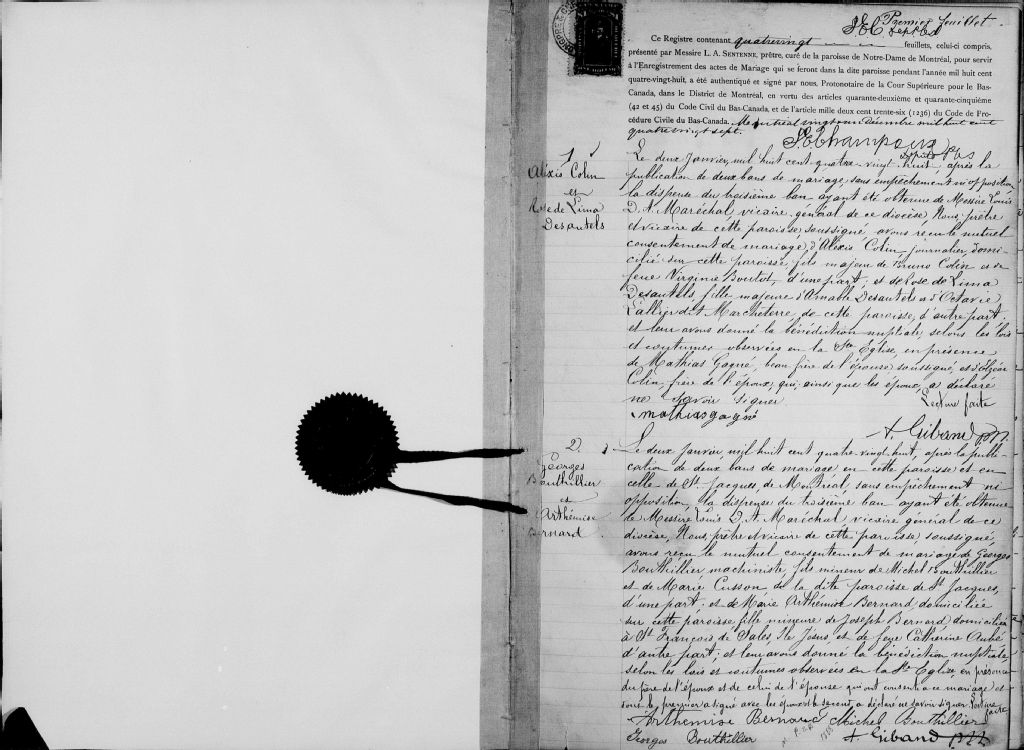 Premier feuillet.
Ce Registre contenant quatrevingt feuillets, celui-ci compris,
présenté par Messire L. A. SENTENNE, prêtre, curé de la paroisse de Notre-Dame de Montréal, pour servir
à l'Enregistrement des actes de Mariage qui se feront dans la dite paroisse pendant l'année mil huit cent
quatre-vingt-huit, a été authentiqué et signé par nous, Protonotaire de la Cour Supérieure pour le Bas-
Canada, dans le District de Montréal, en vertu des articles quarante-deuxième et quarante-cinquième
(42 et 45) du Code Civil du Bas-Canada, et de l'article mille deux cent trente-six (1236) du Code de Pro-
cédure Civile du Bas-Canada. Montréal vingt décembre mil huit cent
quatrevingt sept.
1
Aléxis Colin
et
Rose de Lima
Desautels
Le deux Janvier, mil huit cent quatre-vingt huit, après la
publication de deux bans de mariage, sans empêchement ni opposition
la dispense du troisième ban ayant été obtenue de Messire Louis
D. A. Maréchal vicaire général de ce diocèse, Nous prêtre
et vicaire de cette paroisse soussigné avons reçu le mutuel
consentement de mariage d'Alexis Colin journalier, domi-
cilié sur cette paroisse, fils majeur de Bruno Colin et de
feue Virginie Boutot, d'une part; et de Rose de Lima
Desautels, fille majeure d'Amable Desautels et d'Octavie
Lallier dit Marcheterre, de cette paroisse, d'autre part.
et leur avons donné la bénédiction nuptiale, selon les lois
et coutumes observées en la Ste Église, en présence
de Mathias Gagné, beau frère de l'épouse, soussigné, et
Colin, frère de l'époux; qui, ainsi que les époux, a déclaré
ne savoir signer. Lecture faite
mathias gagné
A. Giband ptr
2.
Georges
Bouthillier
et
Arthémise
Bernard
Le deux Janvier, mil huit cent quatre-vingt huit, après la publi-
cation de deux bans de mariage en cette paroisse et en
celle de St. Jacques, de Montréal, sans empêchement ni
opposition, la dispense du troisième ban ayant été obtenue
de Messire Louis D. A. Maréchal vicaire général de ce
diocèse, Nous, prêtre et vicaire de cette paroisse, soussigné,
avons reçu le mutuel consentement de mariage de Georges
Bouthillier machiniste, fils mineur de Michel Bouthillier
et de Marie Cusson de la dite paroisse de St Jacques,
d'une part; et de Marie Arthémise Bernard, domiciliée
sur cette paroisse fille mineure de Joseph Bernard domicilié
à St François de Sales, Ile Jésus, et de feue Catherine Aubé
d'autre part; et leur avons donné la bénédiction nuptiale,
selon les lois et coutumes observées en la Ste Église, en présence
du père de l'époux et de celui de l'épouse qui ont consenti à ce mariage et
dont le premier a signé avec les époux et le second a déclaré ne savoir signer. Lecture faite
Arthémise Bernard Michel Bouthillier
Georges Bouthillier A. Giband ptr